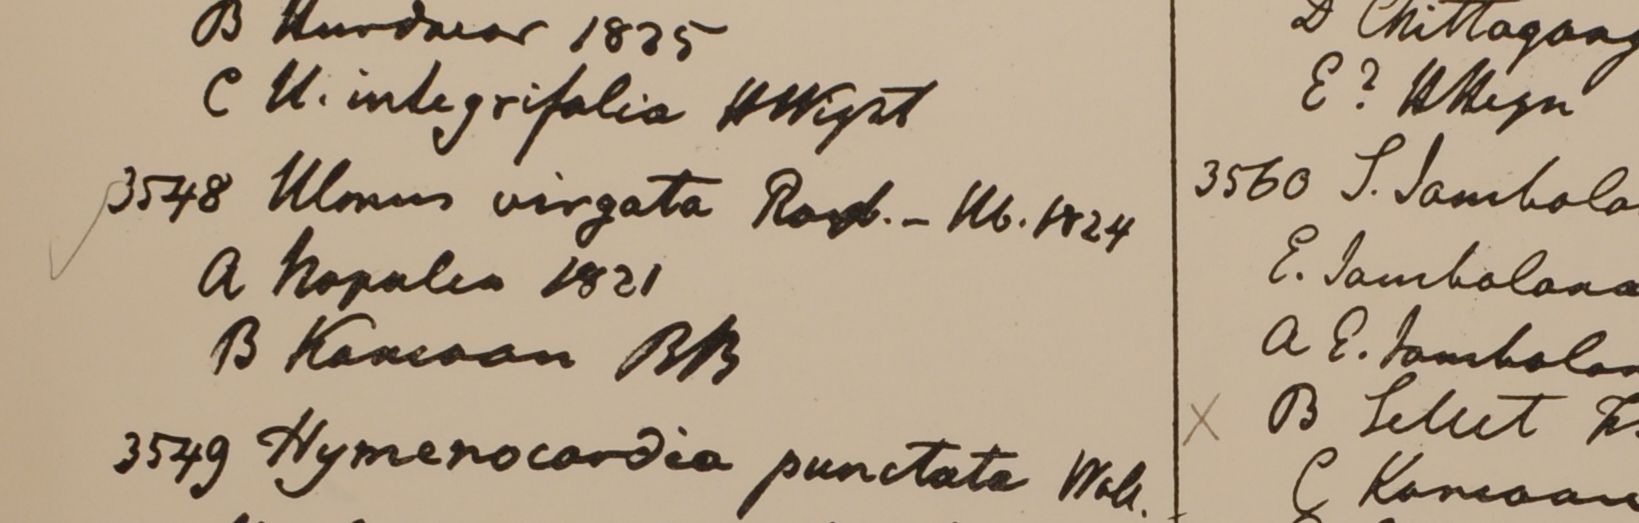 B Hurdwar 1825
C U. integrifolia HWight
3548 Ulmus virgata Roxb. - Hb. 1824
A Napalea 1821
B Kamaon RB
3549 Hymenocardia punctata Wall.
D Chittagong
E? HHeyn
3560 S. Jambola
E. Jambolana
A E. Jambolan
B Sillet
C Kamaon